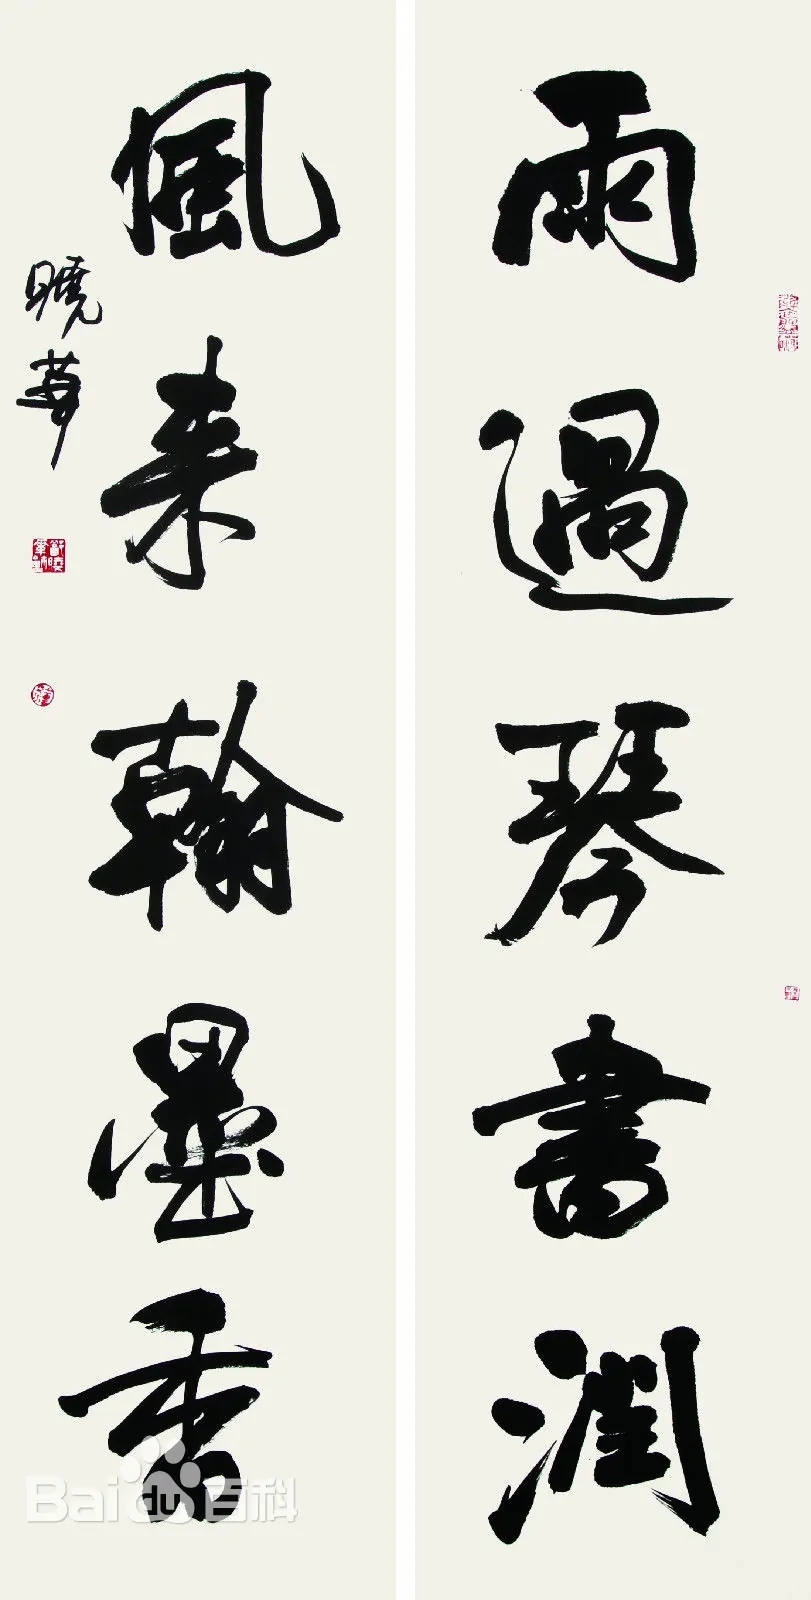 雨過琴書潤
風来翰墨香
曉華
Baidu百科